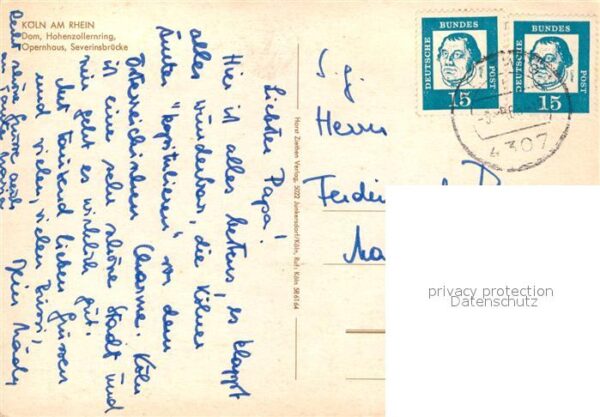 KÖLN AM RHEIN
Dom, Hohenzollernring,
Opernhaus, Severinsbrücke
Liebster Papa!
Hie ist alles bestens, es klappt
alles wunderbar, die Kölner
"kapitulieren" vor dem
Österreichischen Charme. Köln
ist eine sehr schöne Stadt und
mir geht es wirklich gut.
Mit tausend lieben Grüssen
und vielen, vielen Bussi,
Dein Mädy
schöne Grüsse auch
an
Horst Ziethen Verlag, 5022 Junkersdorf/Köln, Ruf: Köln 58 61 64
DEUTSCHE
BUNDES
POST
15
DEUTSCHE
BUNDES
POST
15
4307
S.g.
Herrn
privacy protection
Datenschutz